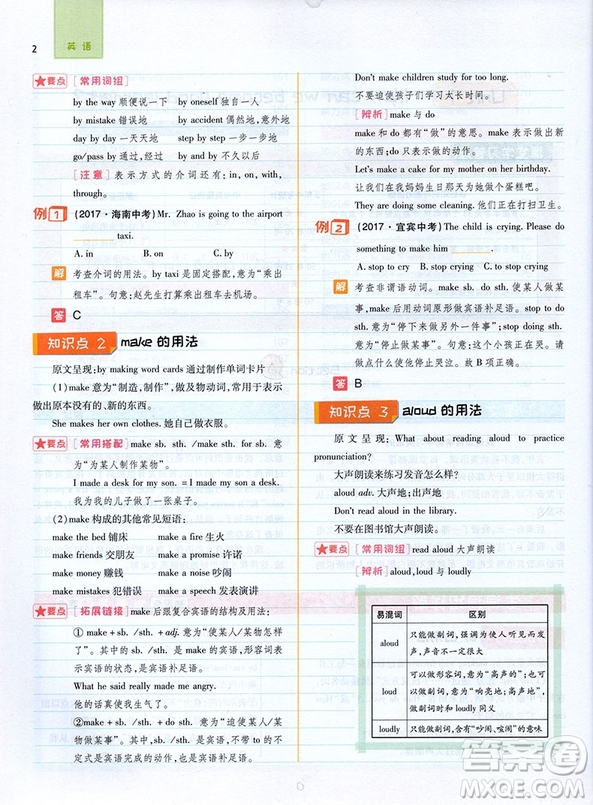 2
英 语
★要点 [常用词组]
by the way 顺便说一下 by oneself 独自一人
by mistake 错误地 by accident 偶然地,意外地
day by day 一天天地 step by step 一步一步地
go/pass by 通过,经过 by and by 不久以后
[注意] 表示方式的介词还有:in, on, with,
through.
例 1 (2017·海南中考)Mr. Zhao is going to the airport
taxi.
A. in B. on C. by
解 考查介词的用法。by taxi 是固定搭配,意为“乘出
租车”。句意:赵先生打算乘出租车去机场。
答 C
知识点 2 make 的用法
原文呈现:by making word cards 通过制作单词卡片
(1)make 意为“制造,制作”,后及物动词,常用于表示
做出原本没有的、新的东西。
She makes her own clothes. 她自己做衣服。
★要点 [常用搭配] make sb. sth. /make sth. for sb. 意
为“为某人制作某物”。
I made a desk for my son. =I made my son a desk.
我为我的儿子做了一张桌子。
(2)make 构成的其他常见短语:
make the bed 铺床 make a fire 生火
make friends 交朋友 make a promise 许诺
make money 赚钱 make a noise 吵闹
make mistakes 犯错误 make a speech 发表演讲
★要点 [拓展链接] make 后跟复合宾语的结构及用法:
①make + sb. /sth. +adj. 意为“使某人/某物怎样
了”。其中,sb. /sth. 是make 的宾语,形容词表
示宾语的状态,是宾语补足语。
What he said really made me angry.
他的话真使我生气。
②make + sb. /sth. + do sth. 意为“迫使某人/某物
做某事”。其中, 不带 to 的动词不
定式是宾语完成的动作,也是宾语补足语。
Don't make children study for too long.
不要迫使孩子们学习太长时间。
[辨析] make 与 do
make 和 do 都有“做”的意思。make 表示制造出某
物;do 只表示做的动作。
Let's make a cake for my mother on her birthday.
让我们在我妈妈生日那天为她做个蛋糕吧。
They are doing some cleaning. 他们正在打扫卫生。
例 2 (2017·宜宾中考)The child is crying. Please do
something to make him .
A. stop to cry B. stop crying C. to stop crying
解 考查非谓语动词。make sb. do sth. 使某人做某
事,make 后用动词原形做宾语补足语。stop to do
sth. 意为“停下来做另外一件事”;stop doing sth. 意
为“停止做某事”。句意:这个孩子在哭。请
做点什么让他停止哭泣。故 B 项正确。
答 B
知识点 3 aloud 的用法
原文呈现: What about reading aloud to practice
pronunciation?
大声朗读来练习发音怎么样?
aloud adv. 大声地;出声地
Don't read aloud in the library.
不要在图书馆大声朗读。
★要点 [常用词组] read aloud 大声朗读
[辨析] aloud, loud 与 loudly
易混词 区别
aloud 只能做副词,强调为使人听见而发出
声,声音不一定很大
loud 可以做形容词,意为“高声的”;也可
以做副词,意为“响亮地;高声地”,做
副词时和 loudly 同义
loudly 只能做副词,含有“吵闹、喧闹”的意味